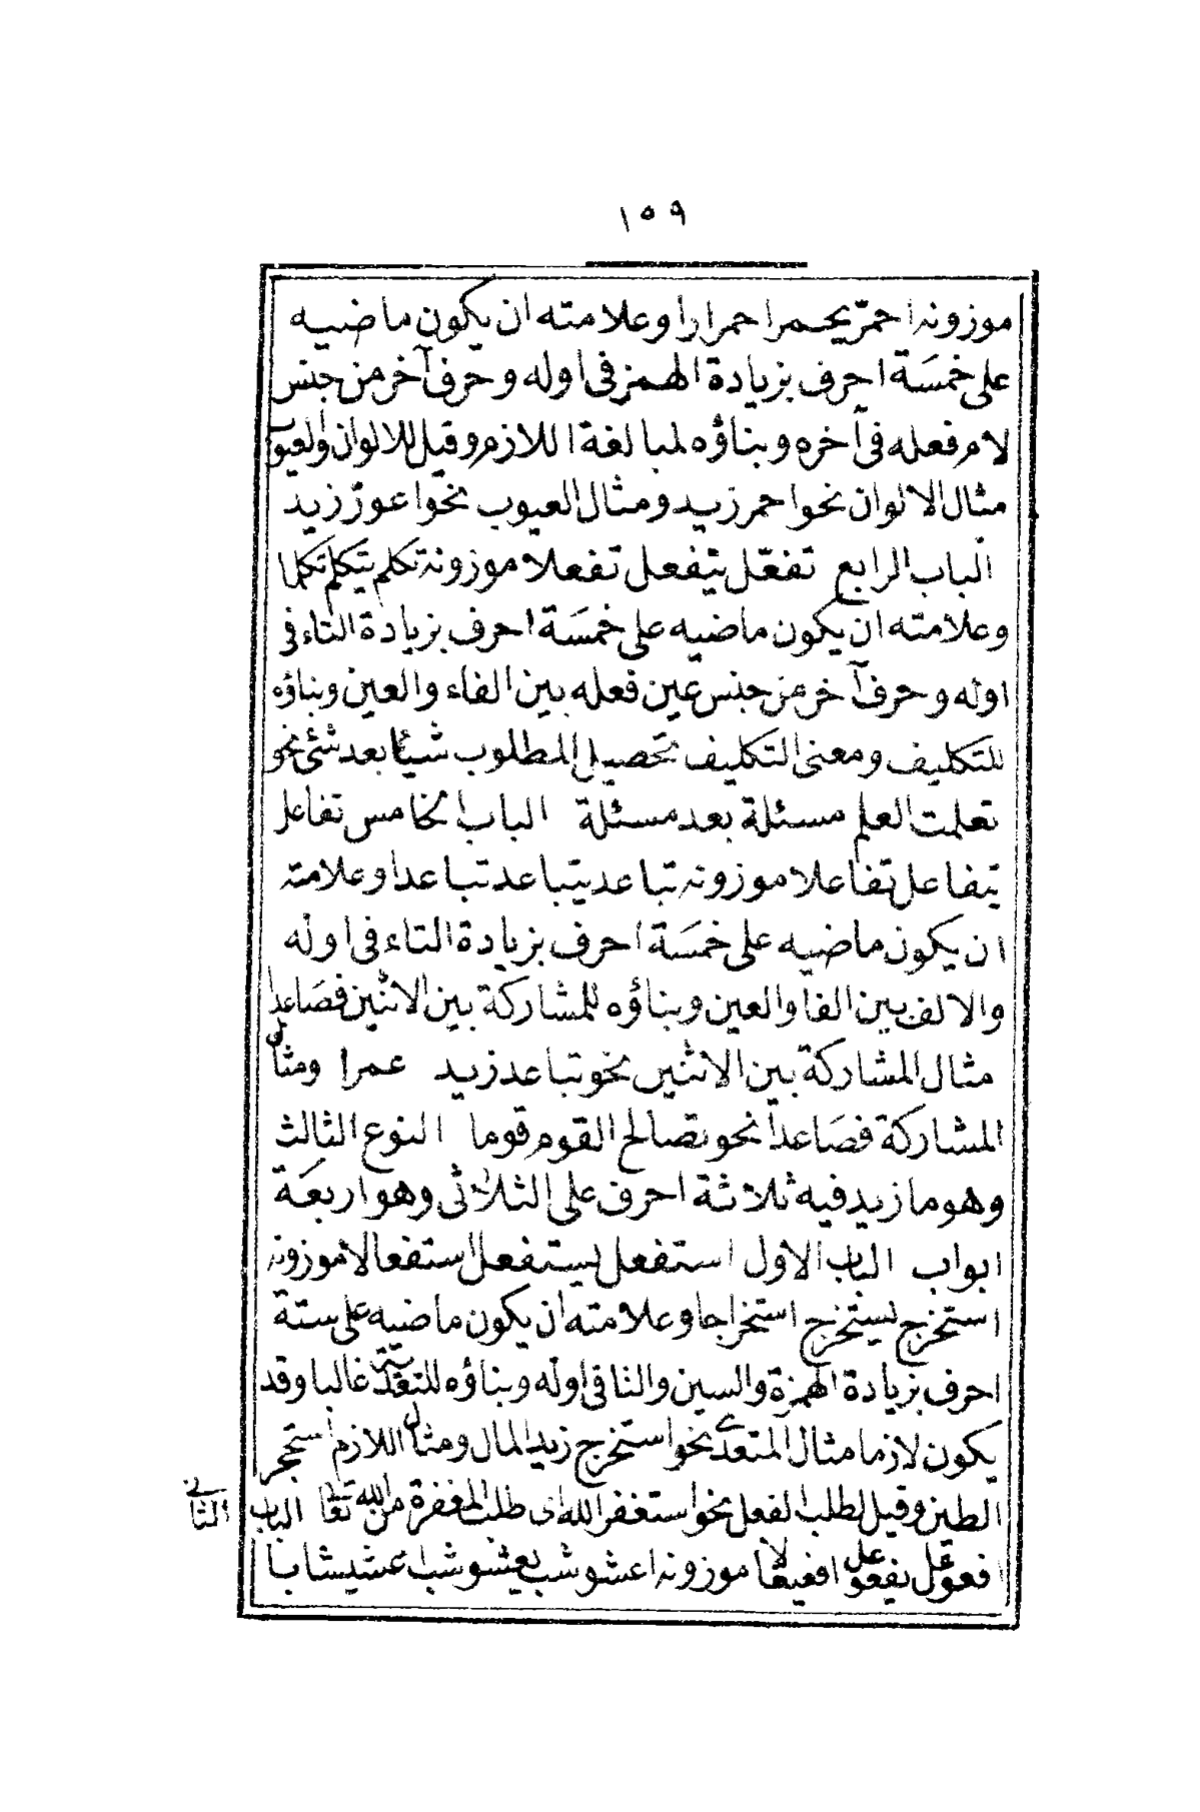 ١٥٩
موزونه احمرّ يحمر احمرارا وعلامته ان يكون ماضيه
على خمسة احرف بزيادة الهمز فى اوله وحرف آخر من جنس
لام فعله فى آخره وبناؤه لمبالغة اللازم وقيل للالوان والعيوب
مثال الالوان نحو احمر زيد ومثال العيوب نحو اعورّ زيد
الباب الرابع تفعّل يتفعل تفعلا موزونه تكلم يتكلم تكلما
وعلامته ان يكون ماضيه على خمسة احرف بزيادة التاء فى
اوله وحرف آخر من جنس عين فعله بين الفاء والعين وبناؤه
للتكليف ومعنى التكليف تحصيل المطلوب شيئا بعد شئ نحو
تعلمت العلم مسئلة بعد مسئلة الباب الخامس تفاعل
يتفاعل تفاعلا موزونه تباعد يتباعد تباعدا وعلامته
ان يكون ماضيه على خمسة احرف بزيادة التاء فى اوله
والالف بين الفا والعين وبناؤه للمشاركة بين الاثنين فصاعدا
مثال المشاركة بين الاثنين نحو تباعد زيد عمرا ومثال
المشاركة فصاعدا نحو تصالح القوم قوما النوع الثالث
وهو ما زيد فيه ثلاثة احرف على الثلاثى وهو اربعة
ابواب الباب الاول استفعل يستفعل استفعالا موزونه
استخرج يستخرج استخراجا وعلامته ان يكون ماضيه على ستة
احرف بزيادة الهمزة والسين والتا فى اوله وبناؤه للتعدية غالبا وقد
يكون لازما مثال المتعدى نحو استخرج زيد المال ومثال اللازم استحجر
الطين وقيل لطلب الفعل نحو استغفر الله اى طلب المغفرة من الله تعا الباب الثانى
افعوعل يفعوعل افعيعالا موزونه اعشوشب يعشوشب اعشيشابا